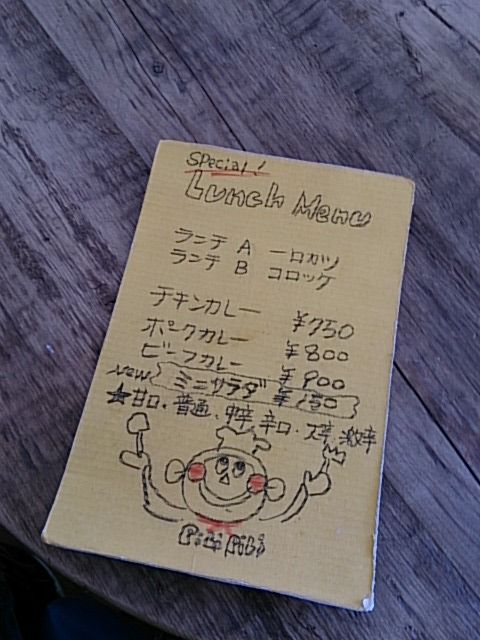 SPecial!
Lunch Menu
ランチ A 一口カツ
ランチ B コロッケ
チキンカレー ¥750
ポークカレー ¥800
ビーフカレー ¥900
New ミニサラダ ¥150
★甘口・普通・中辛・辛口・大辛・激辛
Piti Pibi